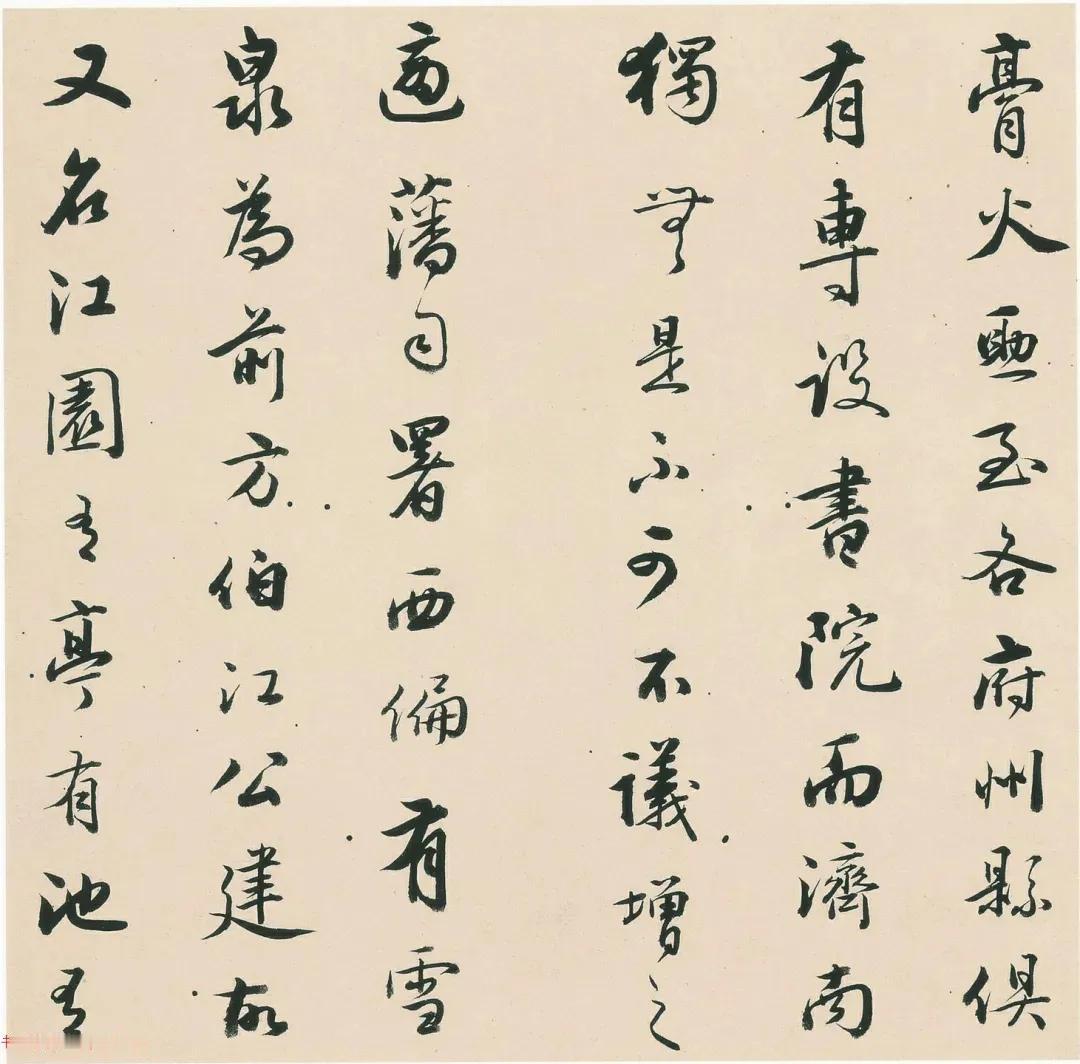 膏火亟至各府州縣俱
有專設書院而濟南
獨無是不可不議增之
適藩司署西偏有雪
泉為前方伯江公建故
又名江園有亭有池有